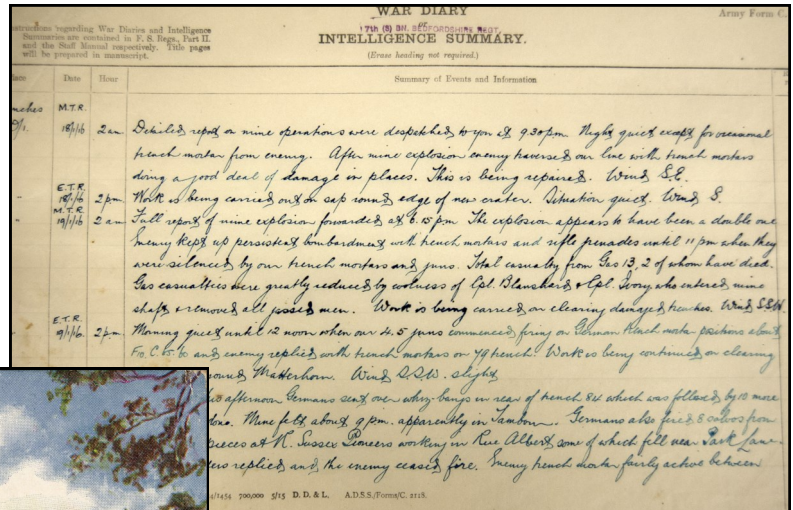 WAR DIARY
or
17th (S) BN. BEDFORDSHIRE REGT.
INTELLIGENCE SUMMARY.
Army Form C.
(Erase heading not required.)
structions regarding War Diaries and Intelligence
Summaries are contained in F. S. Regs., Part II.
and the Staff Manual respectively. Title pages
will be prepared in manuscript.
Date Hour Summary of Events and Information
M.T.R.
18/1/16 2 am Detailed report on mine operations were despatched to you at 9.30 pm. Night quiet except for occasional
trench mortar from enemy. After mine explosion enemy traversed our line with trench mortars
doing a good deal of damage in places. This is being repaired. Wind S.E.
E.T.R.
18/1/16 2 pm Work is being carried out on sap round edge of new crater. Situation quiet. Wind S.
M.T.R.
19/1/16 2 am Full report of mine explosion forwarded at 6.15 pm The explosion appears to have been a double one
Enemy kept up persistent bombardment with trench mortars and rifle grenades until 11 pm when they
were silenced by our trench mortars and guns. Total casualty from Gas 13, 2 of whom have died.
Gas casualties were greatly reduced by coolness of Cpl Blanshard & Cpl. Ivory who entered mine
shaft & removed all gassed men. Work is being carried on clearing damaged trenches. Wind S.S.W.
E.T.R.
9/1/16 2 pm Morning quiet until 12 noon when our 4.5 guns commenced firing on German trench mortar positions about
and enemy replied with trench mortars on 79 trench. Work is being continued on clearing
round Matterhorn. Wind S.S.W. slight
afternoon Germans sent over whiz-bangs in rear of trench 84 which was followed by 10 more
Mine felt about 9 pm. apparently in Tambour. Germans also fired 8 salvos from
pieces at R. Sussex Pioneers working in Rue Albert some of which fell near Park Lane
replied and the enemy ceased fire. Enemy trench mortar fairly active between
/1454 700,000 5/15 D. D. & L. A.D.S.S./Forms/C. 2118.